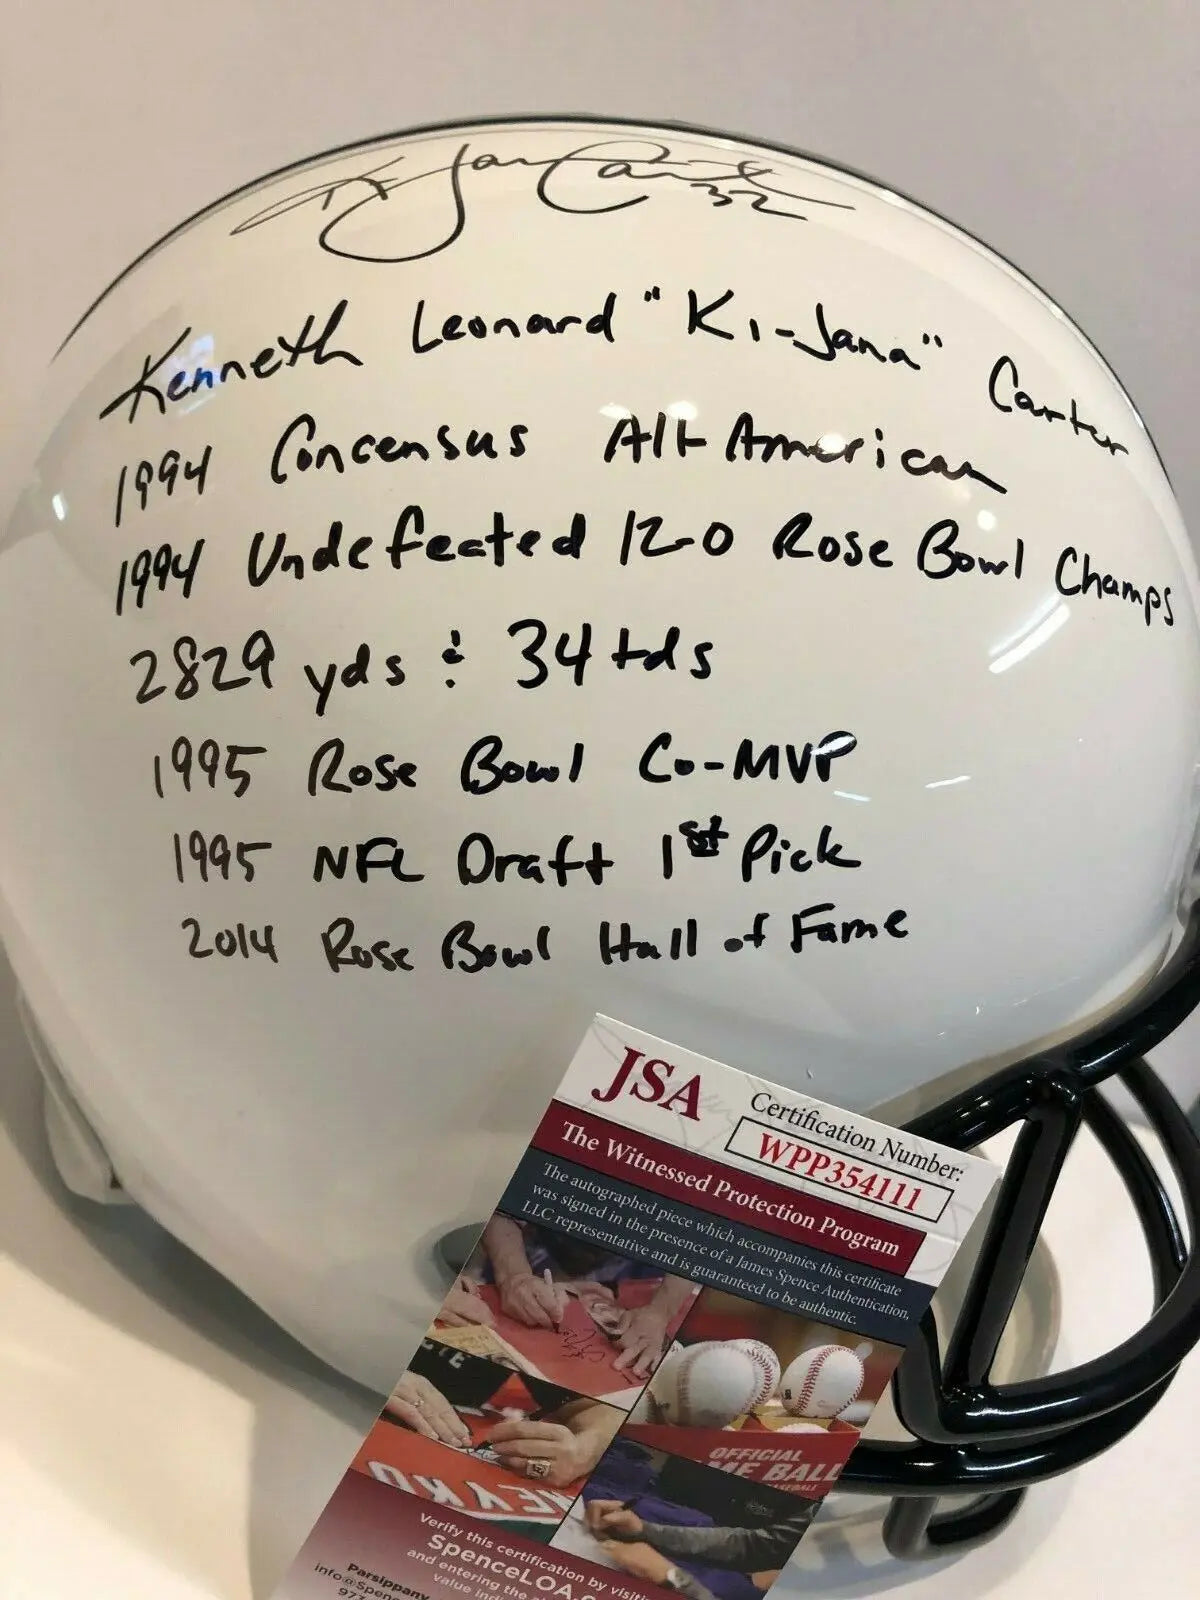 Ki-Jana Carter 32
Kenneth Leonard "Ki-Jana" Carter
1994 Concensus All-American
1994 Undefeated 12-0 Rose Bowl Champs
2829 yds & 34 tds
1995 Rose Bowl Co-MVP
1995 NFL Draft 1st Pick
2014 Rose Bowl Hall of Fame
JSA
Certification Number:
WPP354111
The Witnessed Protection Program
The autographed piece which accompanies this certificate
was signed in the presence of a James Spence Authentication,
LLC representative and is guaranteed to be authentic.
OFFICIAL
ME BALL
BASEBALL
Verify this certification by visiti
SpenceLOA.c
and entering the
value indi
Parsippany
info@Spenc
973